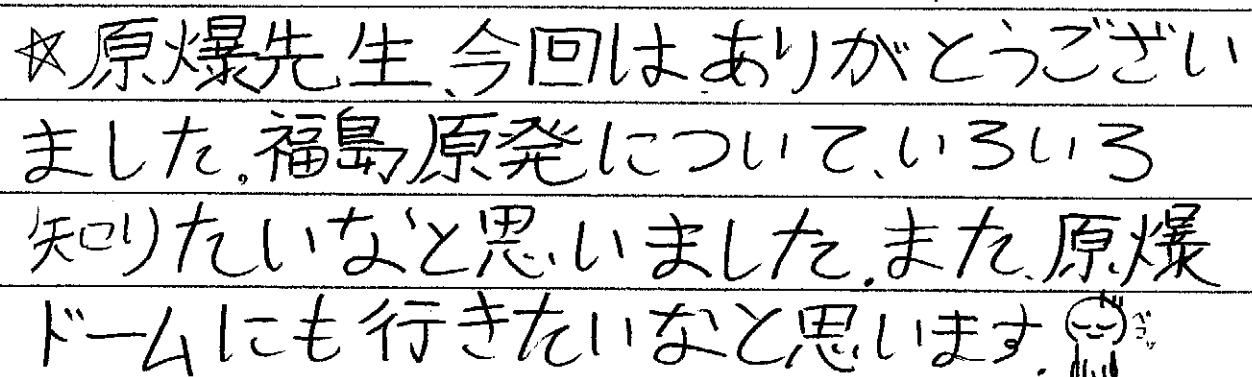 ☆原爆先生、今回はありがとうござい
ました。福島原発について、いろいろ
知りたいなと思いました。また、原爆
ドームにも行きたいなと思います。